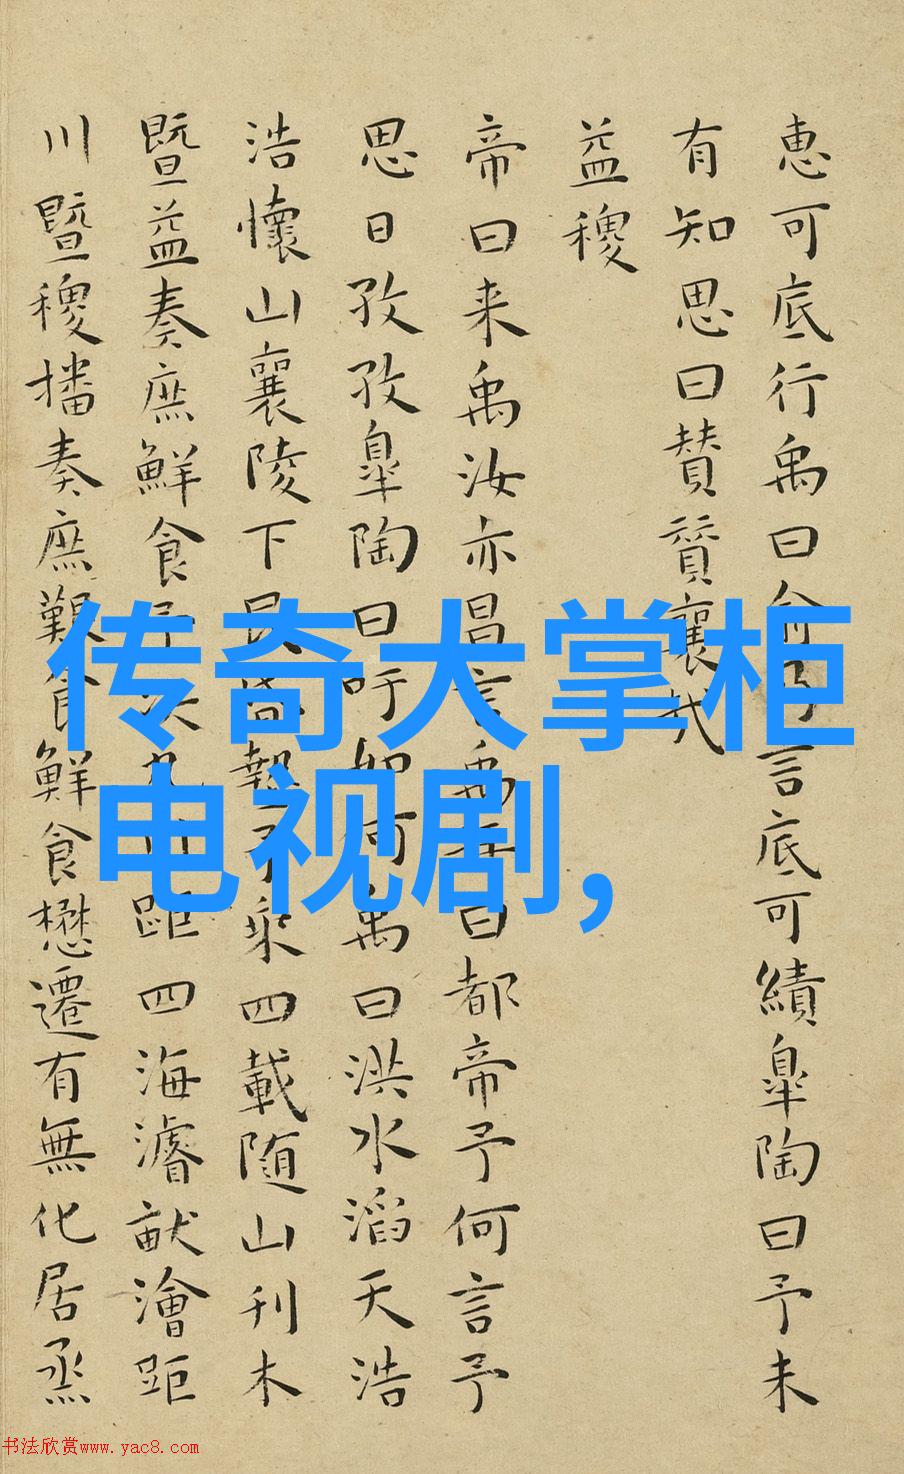 惠可底行禹曰俞乃言底可績皐陶曰予未
有知思曰賛賛襄哉
益稷
帝曰来禹汝亦昌言禹拜曰都帝予何言予
思日孜孜皐陶曰吁如何禹曰洪水滔天浩
浩懷山襄陵下民昏墊予乘四載随山刊木
暨益奏庶鮮食予决九川距四海濬畎澮距
川暨稷播奏庶艱食鮮食懋遷有無化居烝
传奇大掌柜
电视剧,
书法欣赏www.yac8.com